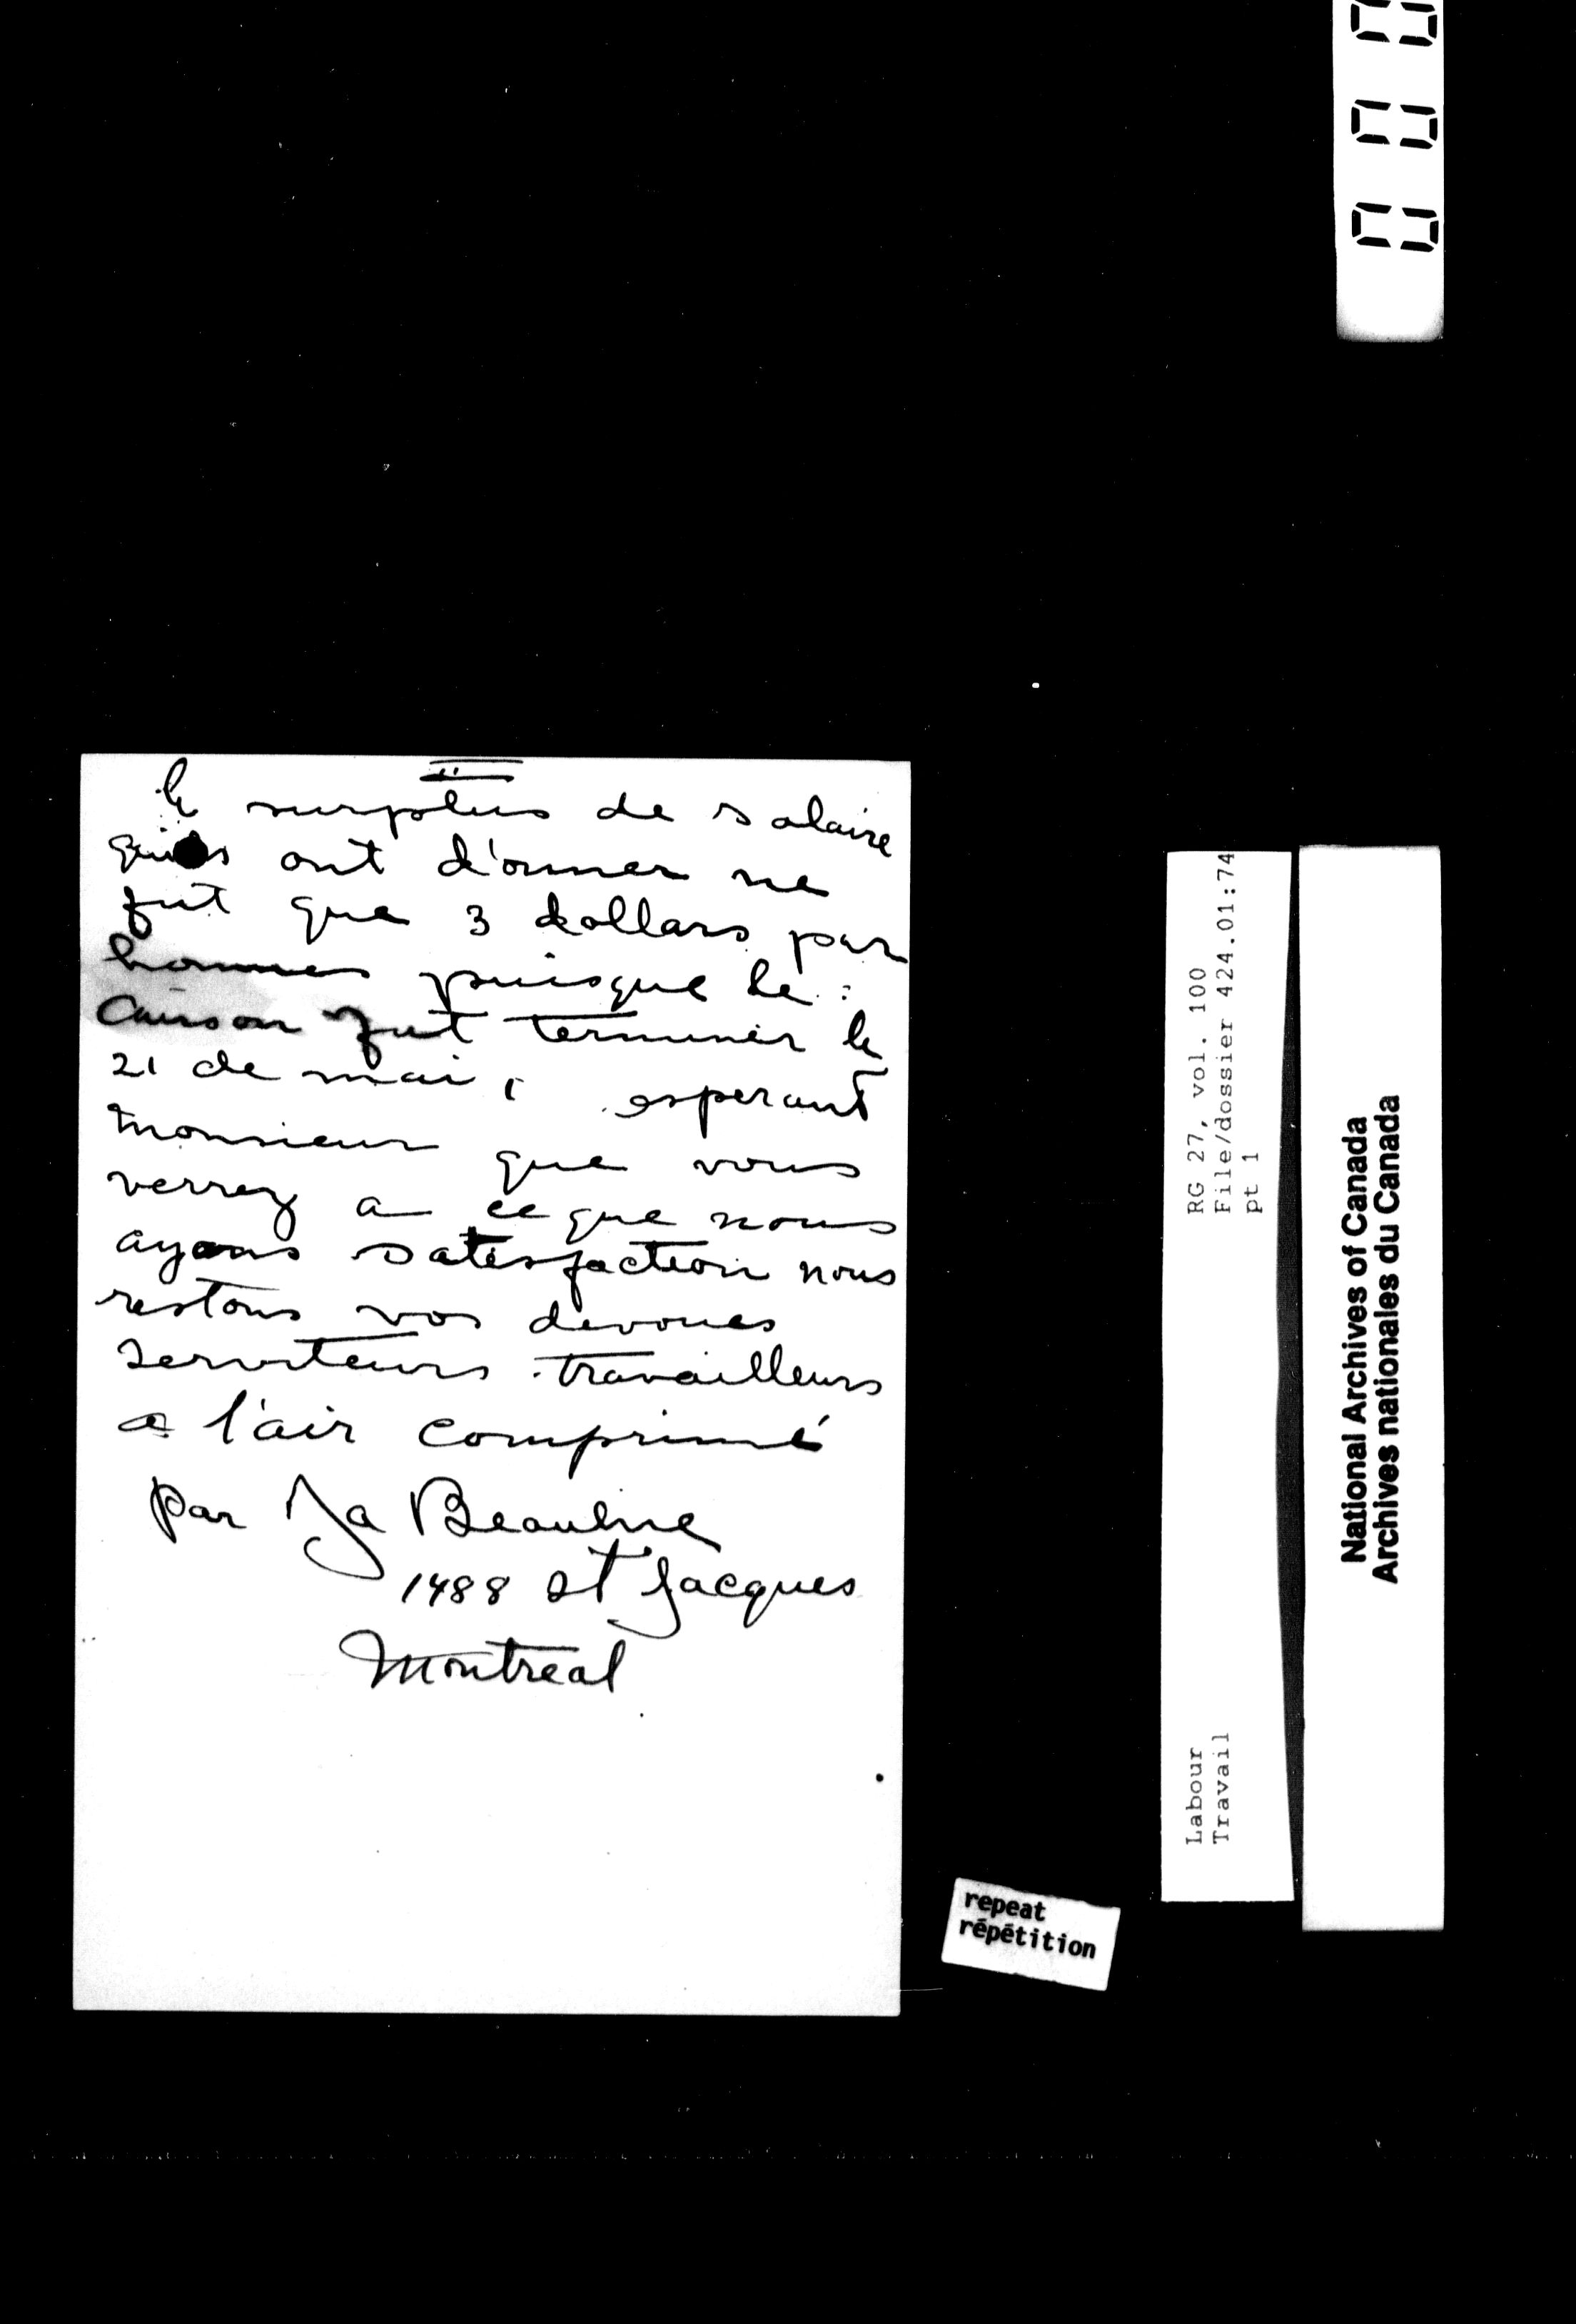 II
le surplus de salaire
quils ont d'onner ne
fut que 3 dollars par
hommes puisque le
Caisson fut terminer le
21 de mai, esperant
monsieur que vous
verrez a ce que nous
ayons satisfaction nous
restons vos devoues
serviteurs travailleurs
a l'air comprimé
par Ja Beaulne
1488 St Jacques
Montreal
RG 27, vol. 100
File/dossier 424.01:74
pt 1
Labour
Travail
National Archives of Canada
Archives nationales du Canada
repeat
répétition